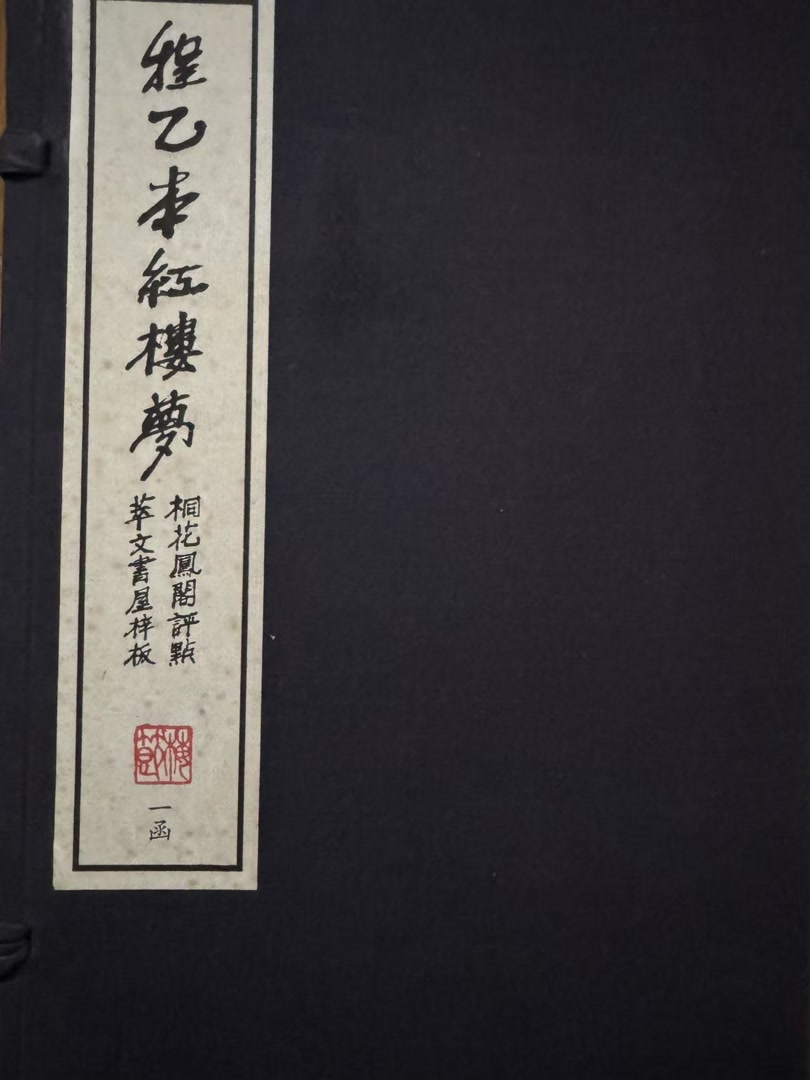 程乙本紅樓夢
桐花鳳閣評點
萃文書屋梓板
梅節
一函